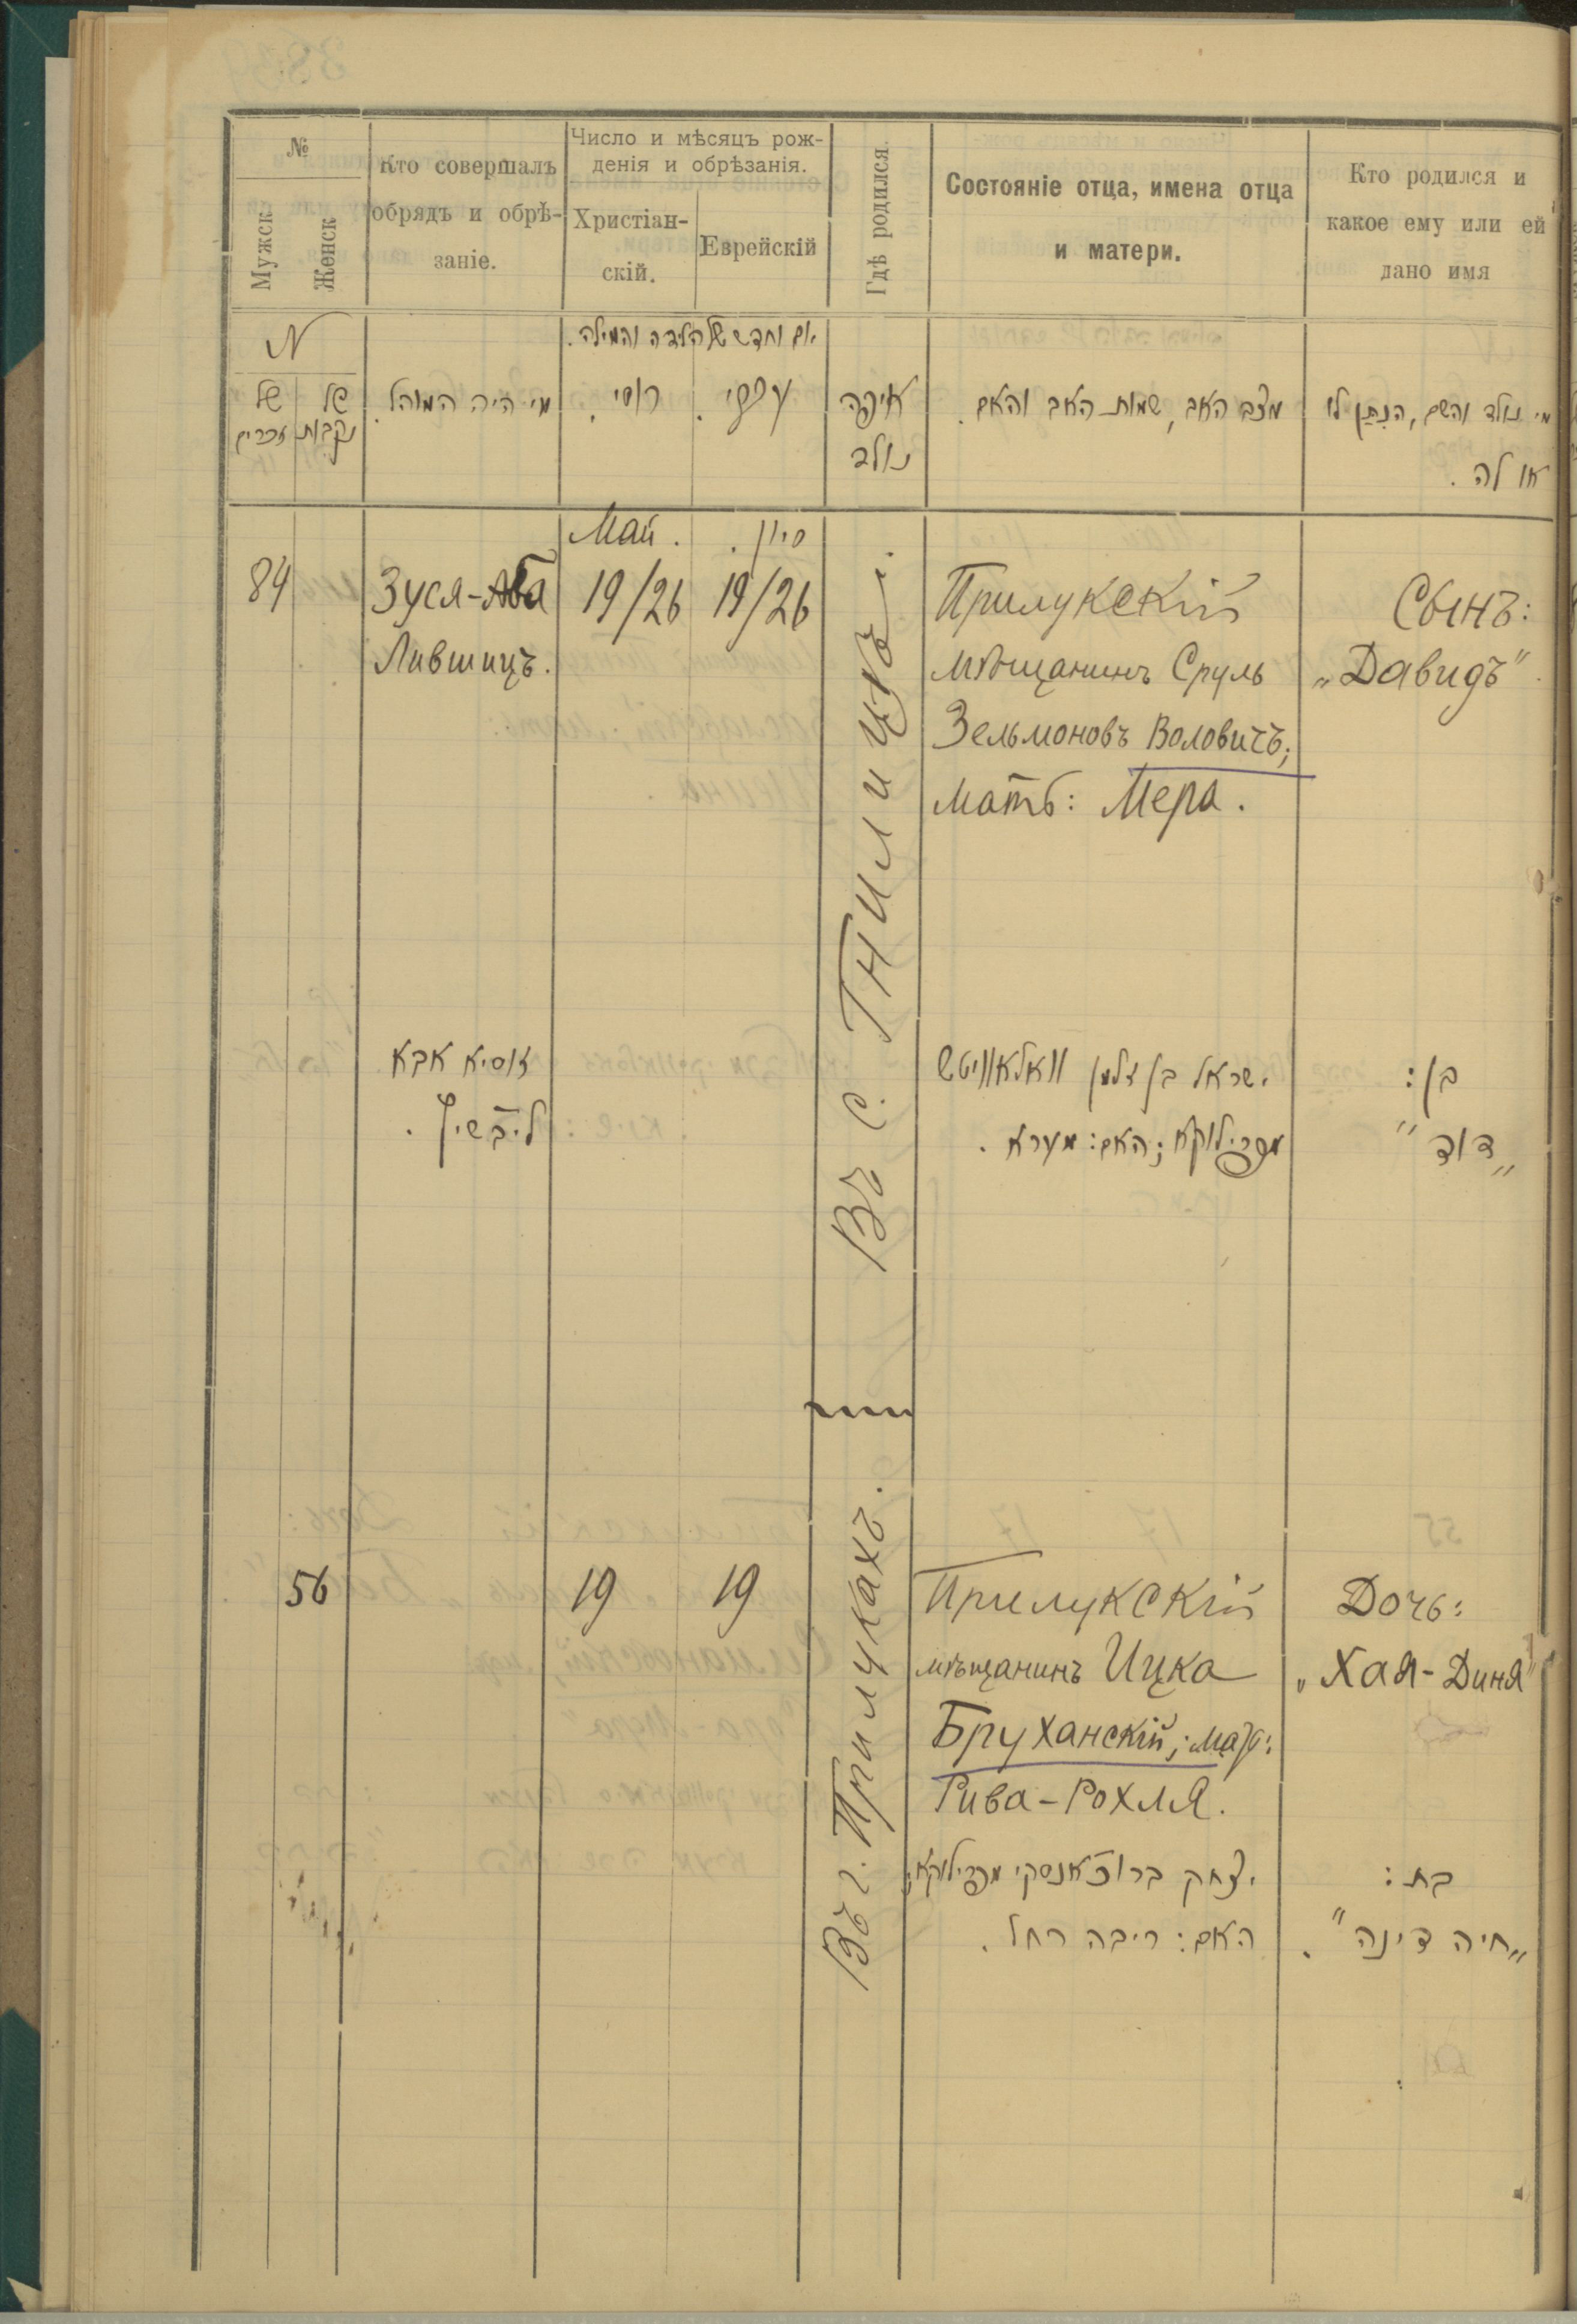 №
Мужск
Женск
Кто совершалъ
обрядъ и обрѣ-
заніе.
Число и мѣсяцъ рож-
денія и обрѣзанія.
Христіан-
скій.
Еврейскій
Гдѣ родился.
Состояніе отца, имена отца
и матери.
Кто родился и
какое ему или ей
дано имя
N
של
זכרים
של
נקבות
מי היה המוהל.
יום וחדש של הלידה והמילה.
רוסי.
עברי.
איפה
נולד
מצב האב, שמות האב והאם.
מי נולד והשם, הנתן לו
או לה.
Май.
סיון.
84
Зуся-Аба
Лившицъ.
19/26
19/26
Въ с.
Прилукскій
мѣщанинъ Сруль
Зельмоновъ Воловичъ;
мать: Мера.
Сынъ:
„Давидъ"
זוסיא אבא
ליבשיץ.
ישראל בן זלמן וואלאוויטש
מפרילוקא; האם: מערא.
בן:
„דוד"
56
19
19
Въ г. Прилукахъ.
Прилукскій
мѣщанинъ Ицка
Бруханскій; мать:
Рива-Рохля.
Дочь:
„Хая-Диня"
יצחק ברוכאנסקי מפרילוקא;
האם: ריבה רחל.
בת:
„חיה דינה".